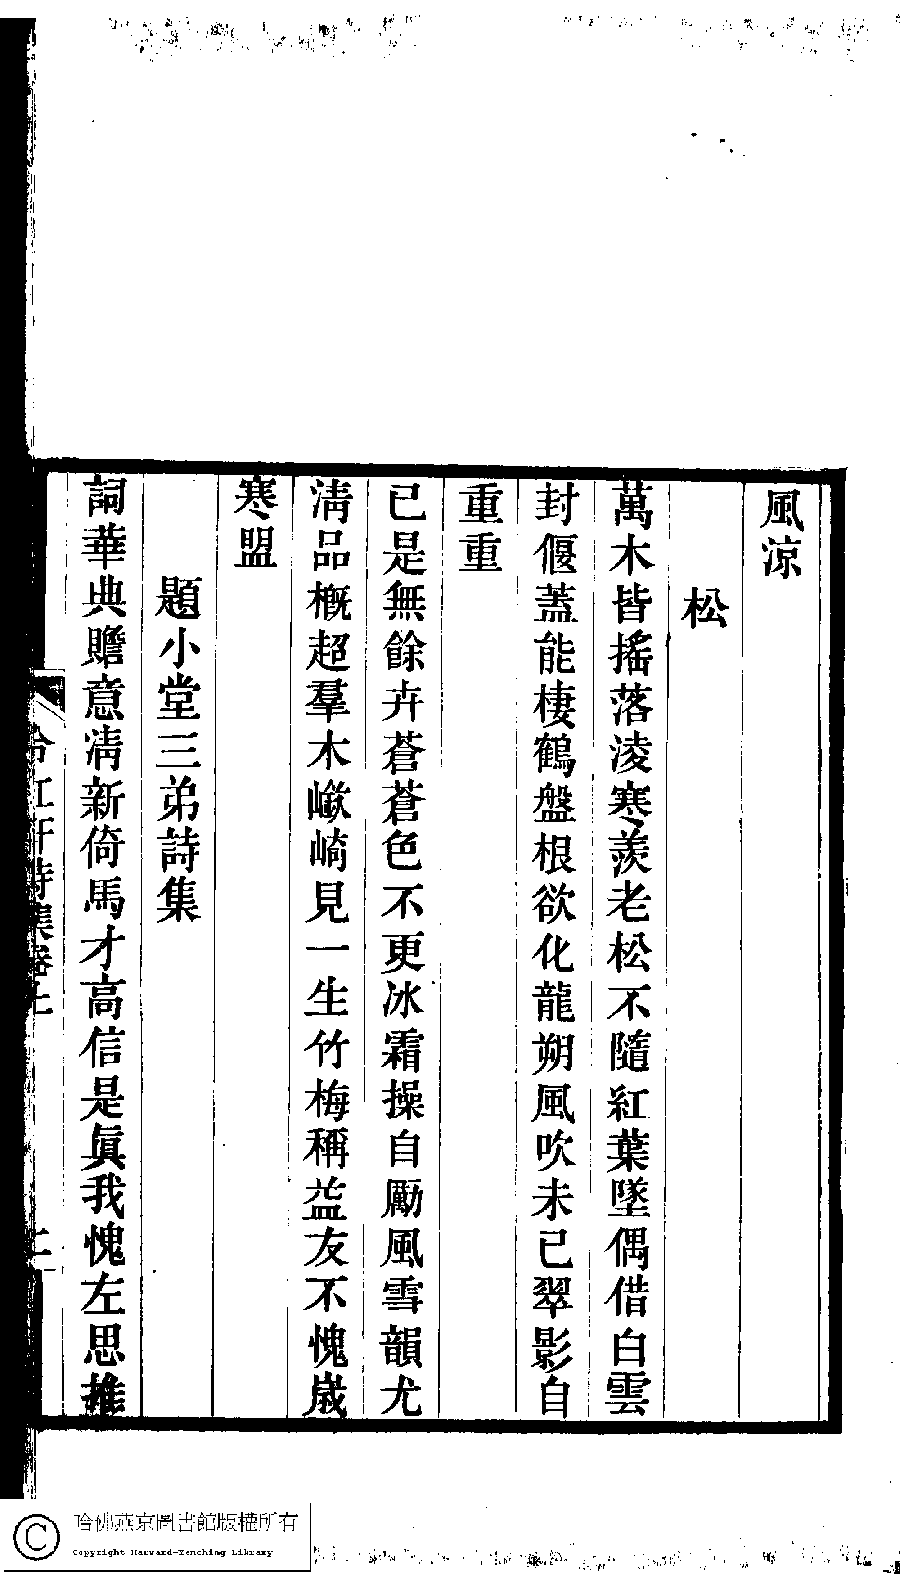 風涼
松
萬木皆搖落淩寒羨老松不隨紅葉墜偶借白雲
封偃蓋能棲鶴盤根欲化龍朔風吹未已翠影自
重重
已是無餘卉蒼蒼色不更冰霜操自勵風雪韻尤
清品概超羣木嶔崎見一生竹梅稱益友不愧歲
寒盟
題小堂三弟詩集
詞華典贍意清新倚馬才高信是眞我愧左思推
詩集卷上
二
哈佛燕京圖書館版權所有
Copyright Harvard-Yenching Library